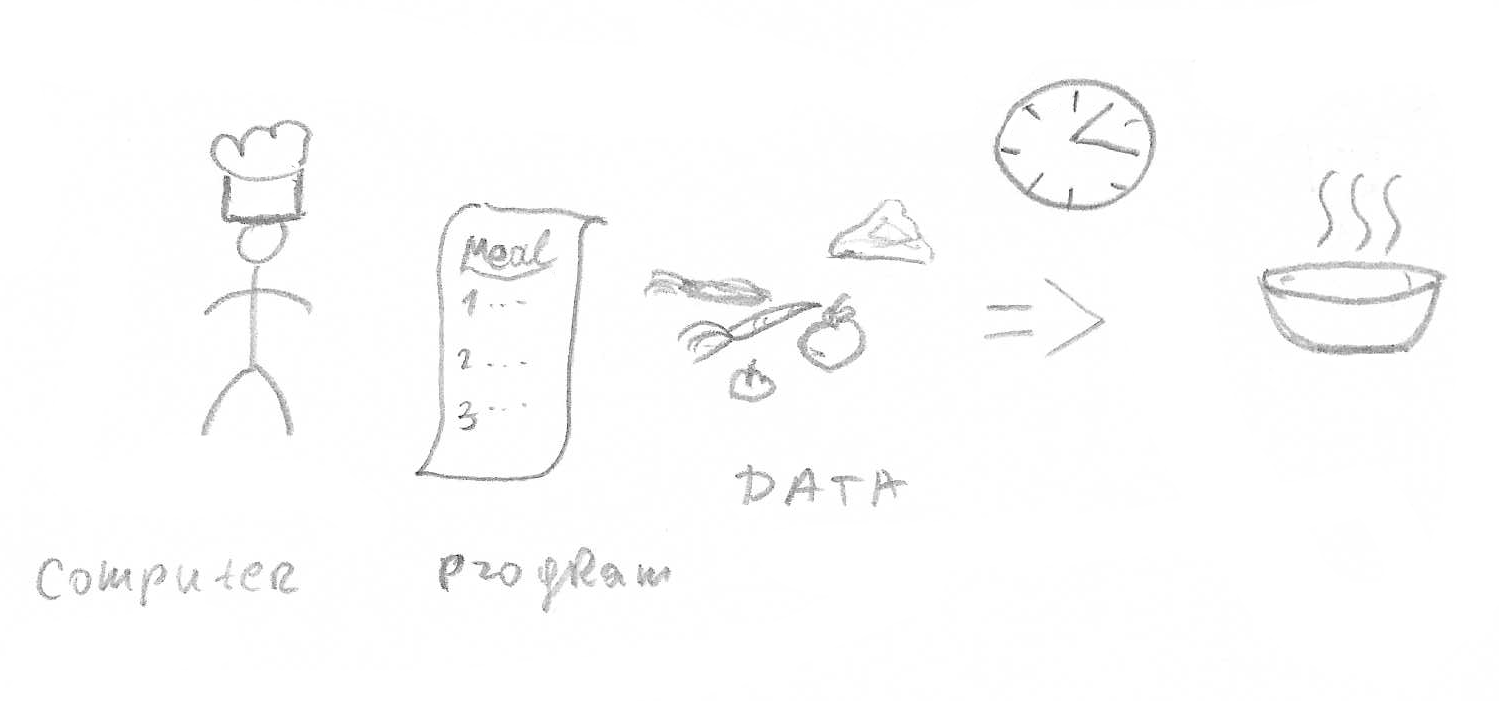 Meal
1 ...
2 ...
3 ...
DATA
Computer
Program